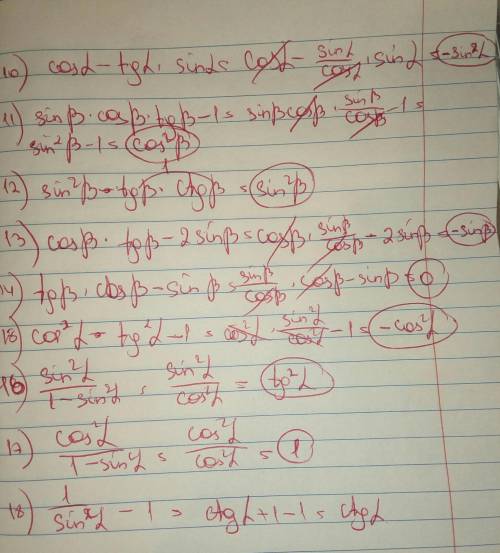 10) cosα - tgα · sinα = cosα - sinα/cosα · sinα = -sin²α
11) sinβ · cosβ · tgβ - 1 = sinβ cosβ · sinβ/cosβ - 1 =
sin²β - 1 = cos²β
12) sin²β - tgβ · ctgβ = sin²β
1
13) cosβ · tgβ - 2sinβ = cosβ · sinβ/cosβ - 2sinβ = -sinβ
14) tgβ · cosβ - sinβ = sinβ/cosβ · cosβ - sinβ = 0
15) cos²α - tg²α - 1 = cos²α · sin²α/cos²α - 1 = -cos²α
16) sin²α/1-sin²α = sin²α/cos²α = tg²α
17) cos²α/1-sin²α = cos²α/cos²α = 1
18) 1/sin²α - 1 = ctgα + 1 - 1 = ctgα